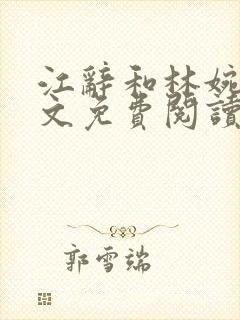 江辭和林婉
文免費閱讀
郭雪端